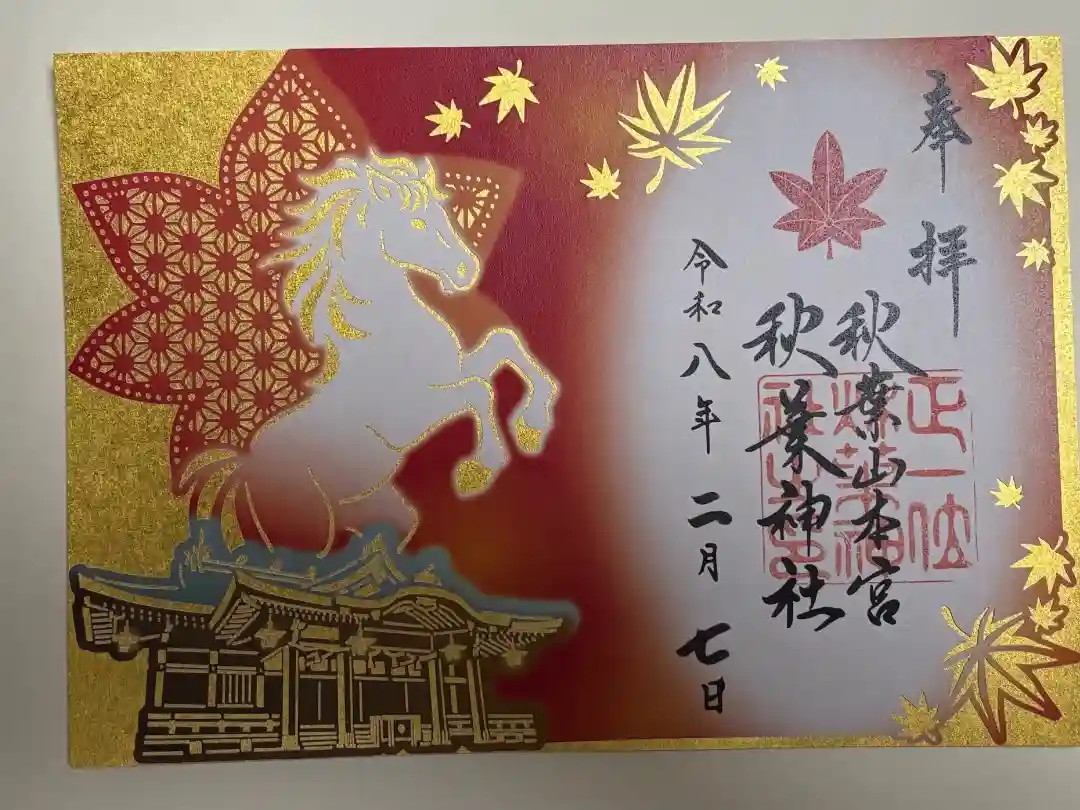 奉拝
秋葉山本宮
秋葉神社
令和八年二月七日
正一位
秋葉神
社之印